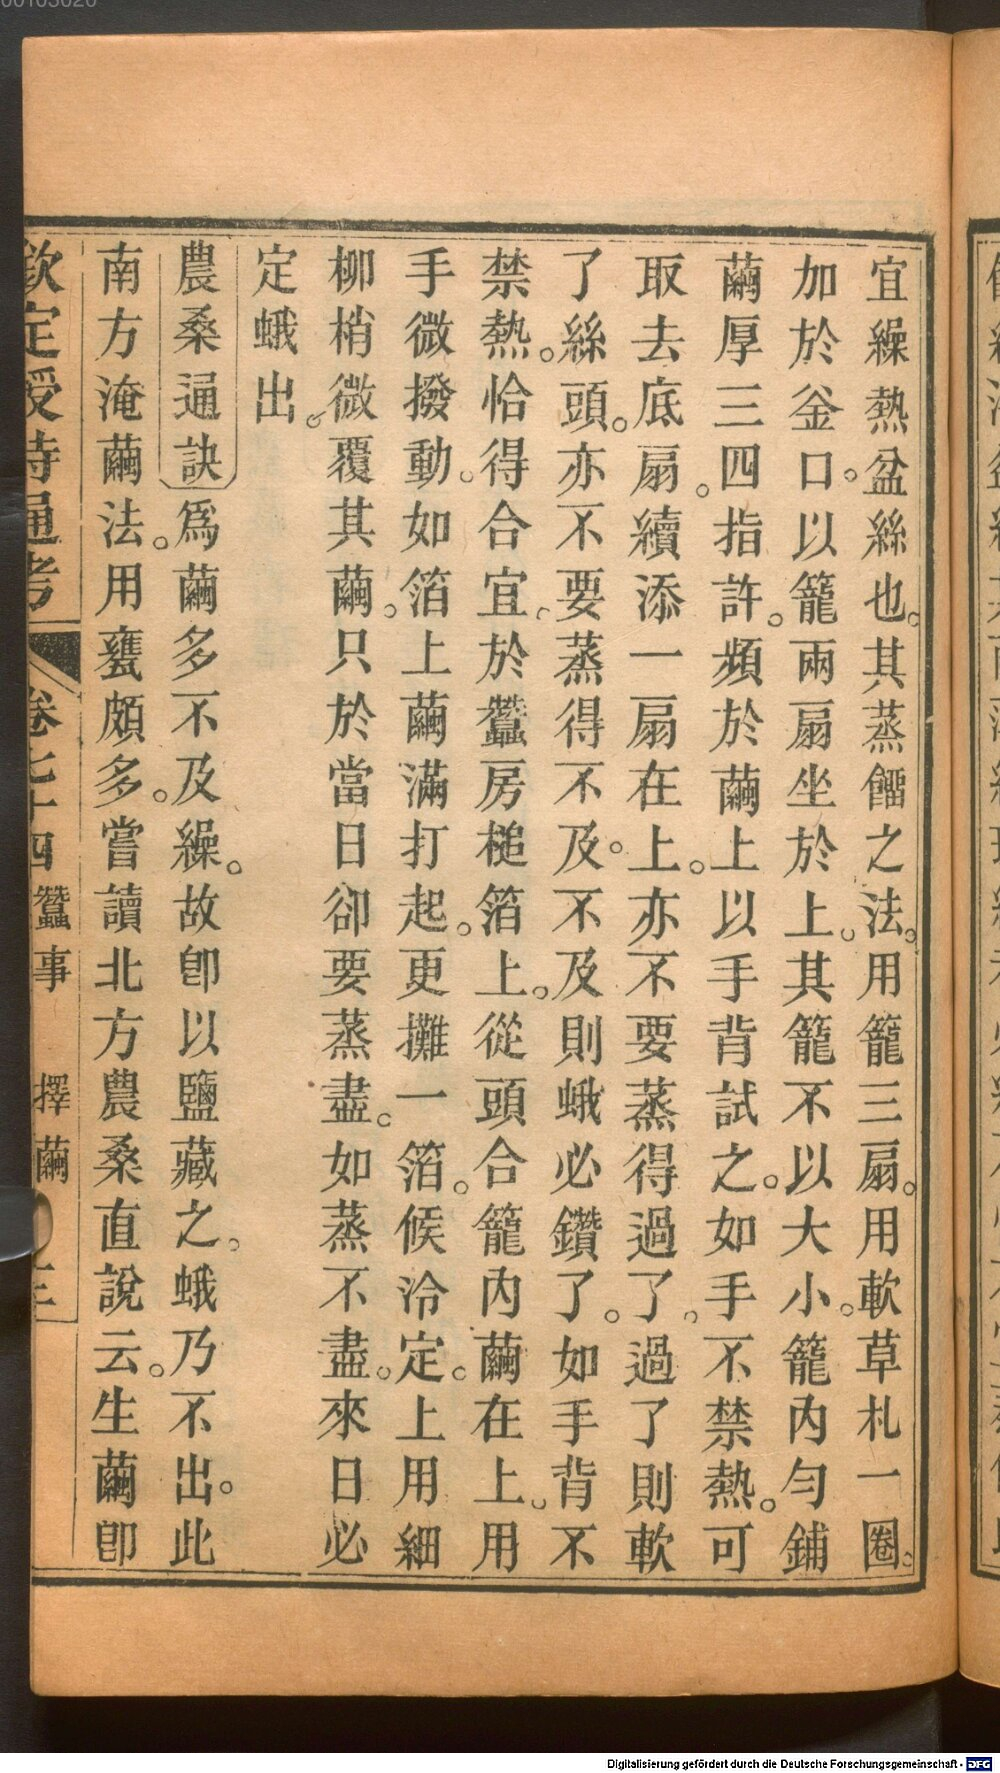 宜繰熱盆絲也。其蒸餾之法。用籠三扇。用軟草札一圈。
加於釡口。以籠兩扇坐於上。其籠不以大小。籠內勻鋪
繭厚三四指許。頻於繭上以手背試之。如手不禁熱。可
取去底扇。續添一扇在上。亦不要蒸得過了。過了則軟
了絲頭。亦不要蒸得不及。不及則蛾必鑽了。如手背不
禁熱。恰得合宜。於蠶房槌箔上。從頭合籠內繭在上。用
手微撥動。如箔上繭滿打起。更攤一箔。候冷定。上用細
柳梢微覆其繭。只於當日卻要蒸盡。如蒸不盡。來日必
定蛾出。
農桑通訣爲繭多不及繰。故卽以鹽藏之。蛾乃不出。此
南方淹繭法。用甕頗多。嘗讀北方農桑直說云。生繭卽
欽定授時通考 卷七十四 蠶事 擇繭 三
Digitalisierung gefördert durch die Deutsche Forschungsgemeinschaft - DFG